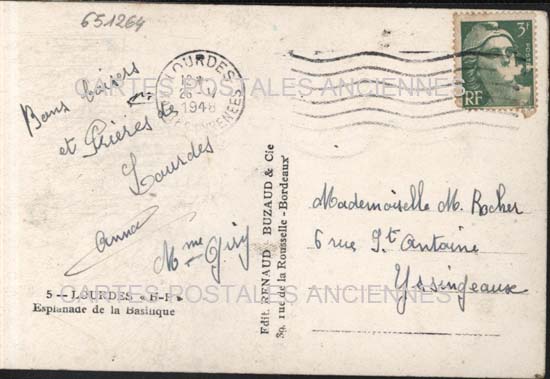 651264
LOURDES
1948
3f
RF
CARTES POSTALES ANCIENNES
Bons baisers
et Prières de
Lourdes
Anna
Mme
Mademoiselle M. Rocher
6 rue St Antoine
Yssingeaux
Edit. RENAUD BUZAUD & Cie
39, rue de la Rousselle - Bordeaux
5 -- LOURDES « B-R »
Esplanade de la Basilique
CARTES POSTALES ANCIENNES